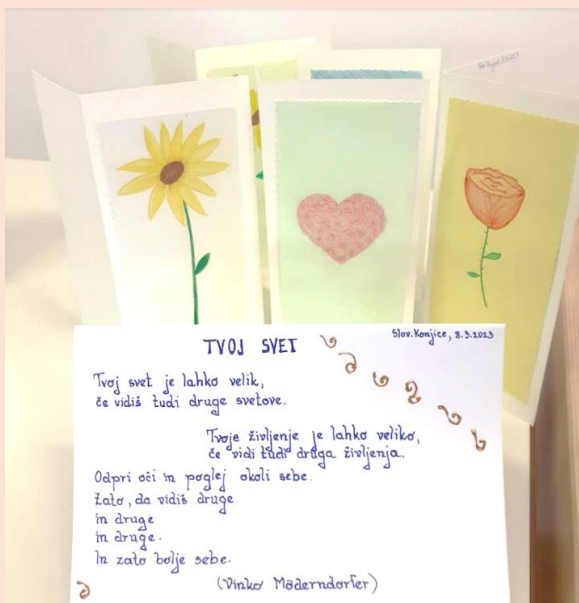 TVOJ SVET
Slov. Konjice, 8.3.2023
Tvoj svet je lahko velik,
če vidiš tudi druge svetove.
Tvoje življenje je lahko veliko,
če vidi tudi druga življenja.
Odpri oči in poglej okoli sebe.
Zato, da vidiš druge
in druge
in druge.
In zato bolje sebe.
(Vinko Möderndorfer)